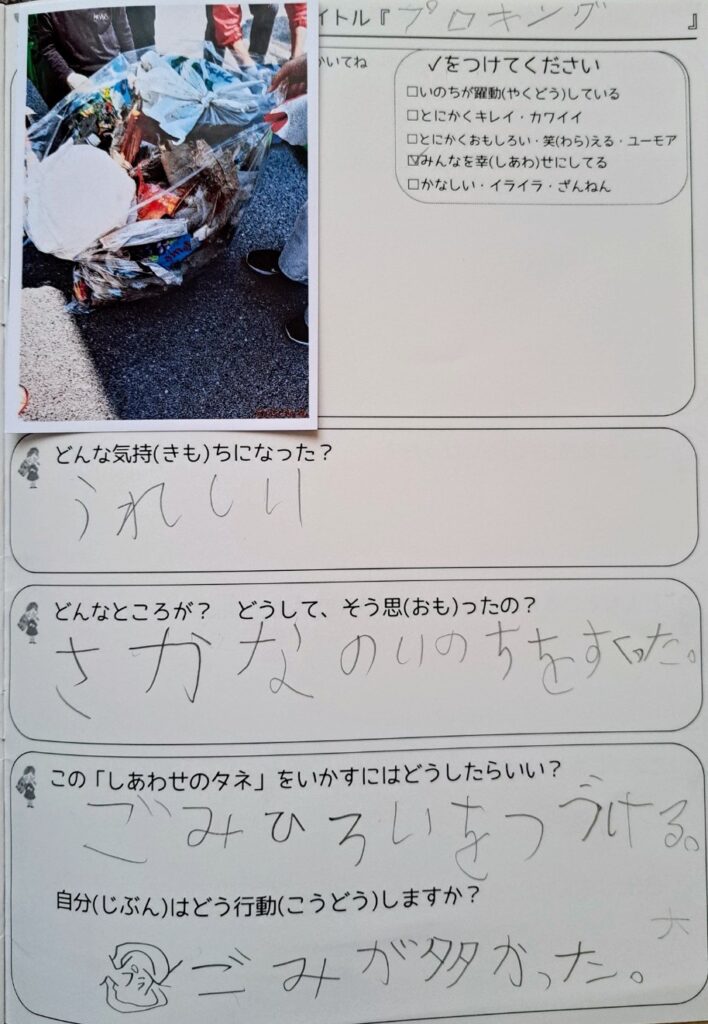 イトル『プロキング』
かいてね
✓をつけてください
□いのちが躍動(やくどう)している
□とにかくキレイ・カワイイ
□とにかくおもしろい・笑(わら)える・ユーモア
☑みんなを幸(しあわ)せにしてる
□かなしい・イライラ・ざんねん
どんな気持(きも)ちになった？
うれしい
どんなところが？　どうして、そう思(おも)ったの？
さかなのいのちをすくった。
この「しあわせのタネ」をいかすにはどうしたらいい？
ごみひろいをつづける。
自分(じぶん)はどう行動(こうどう)しますか？
プラ
ごみが多かった。